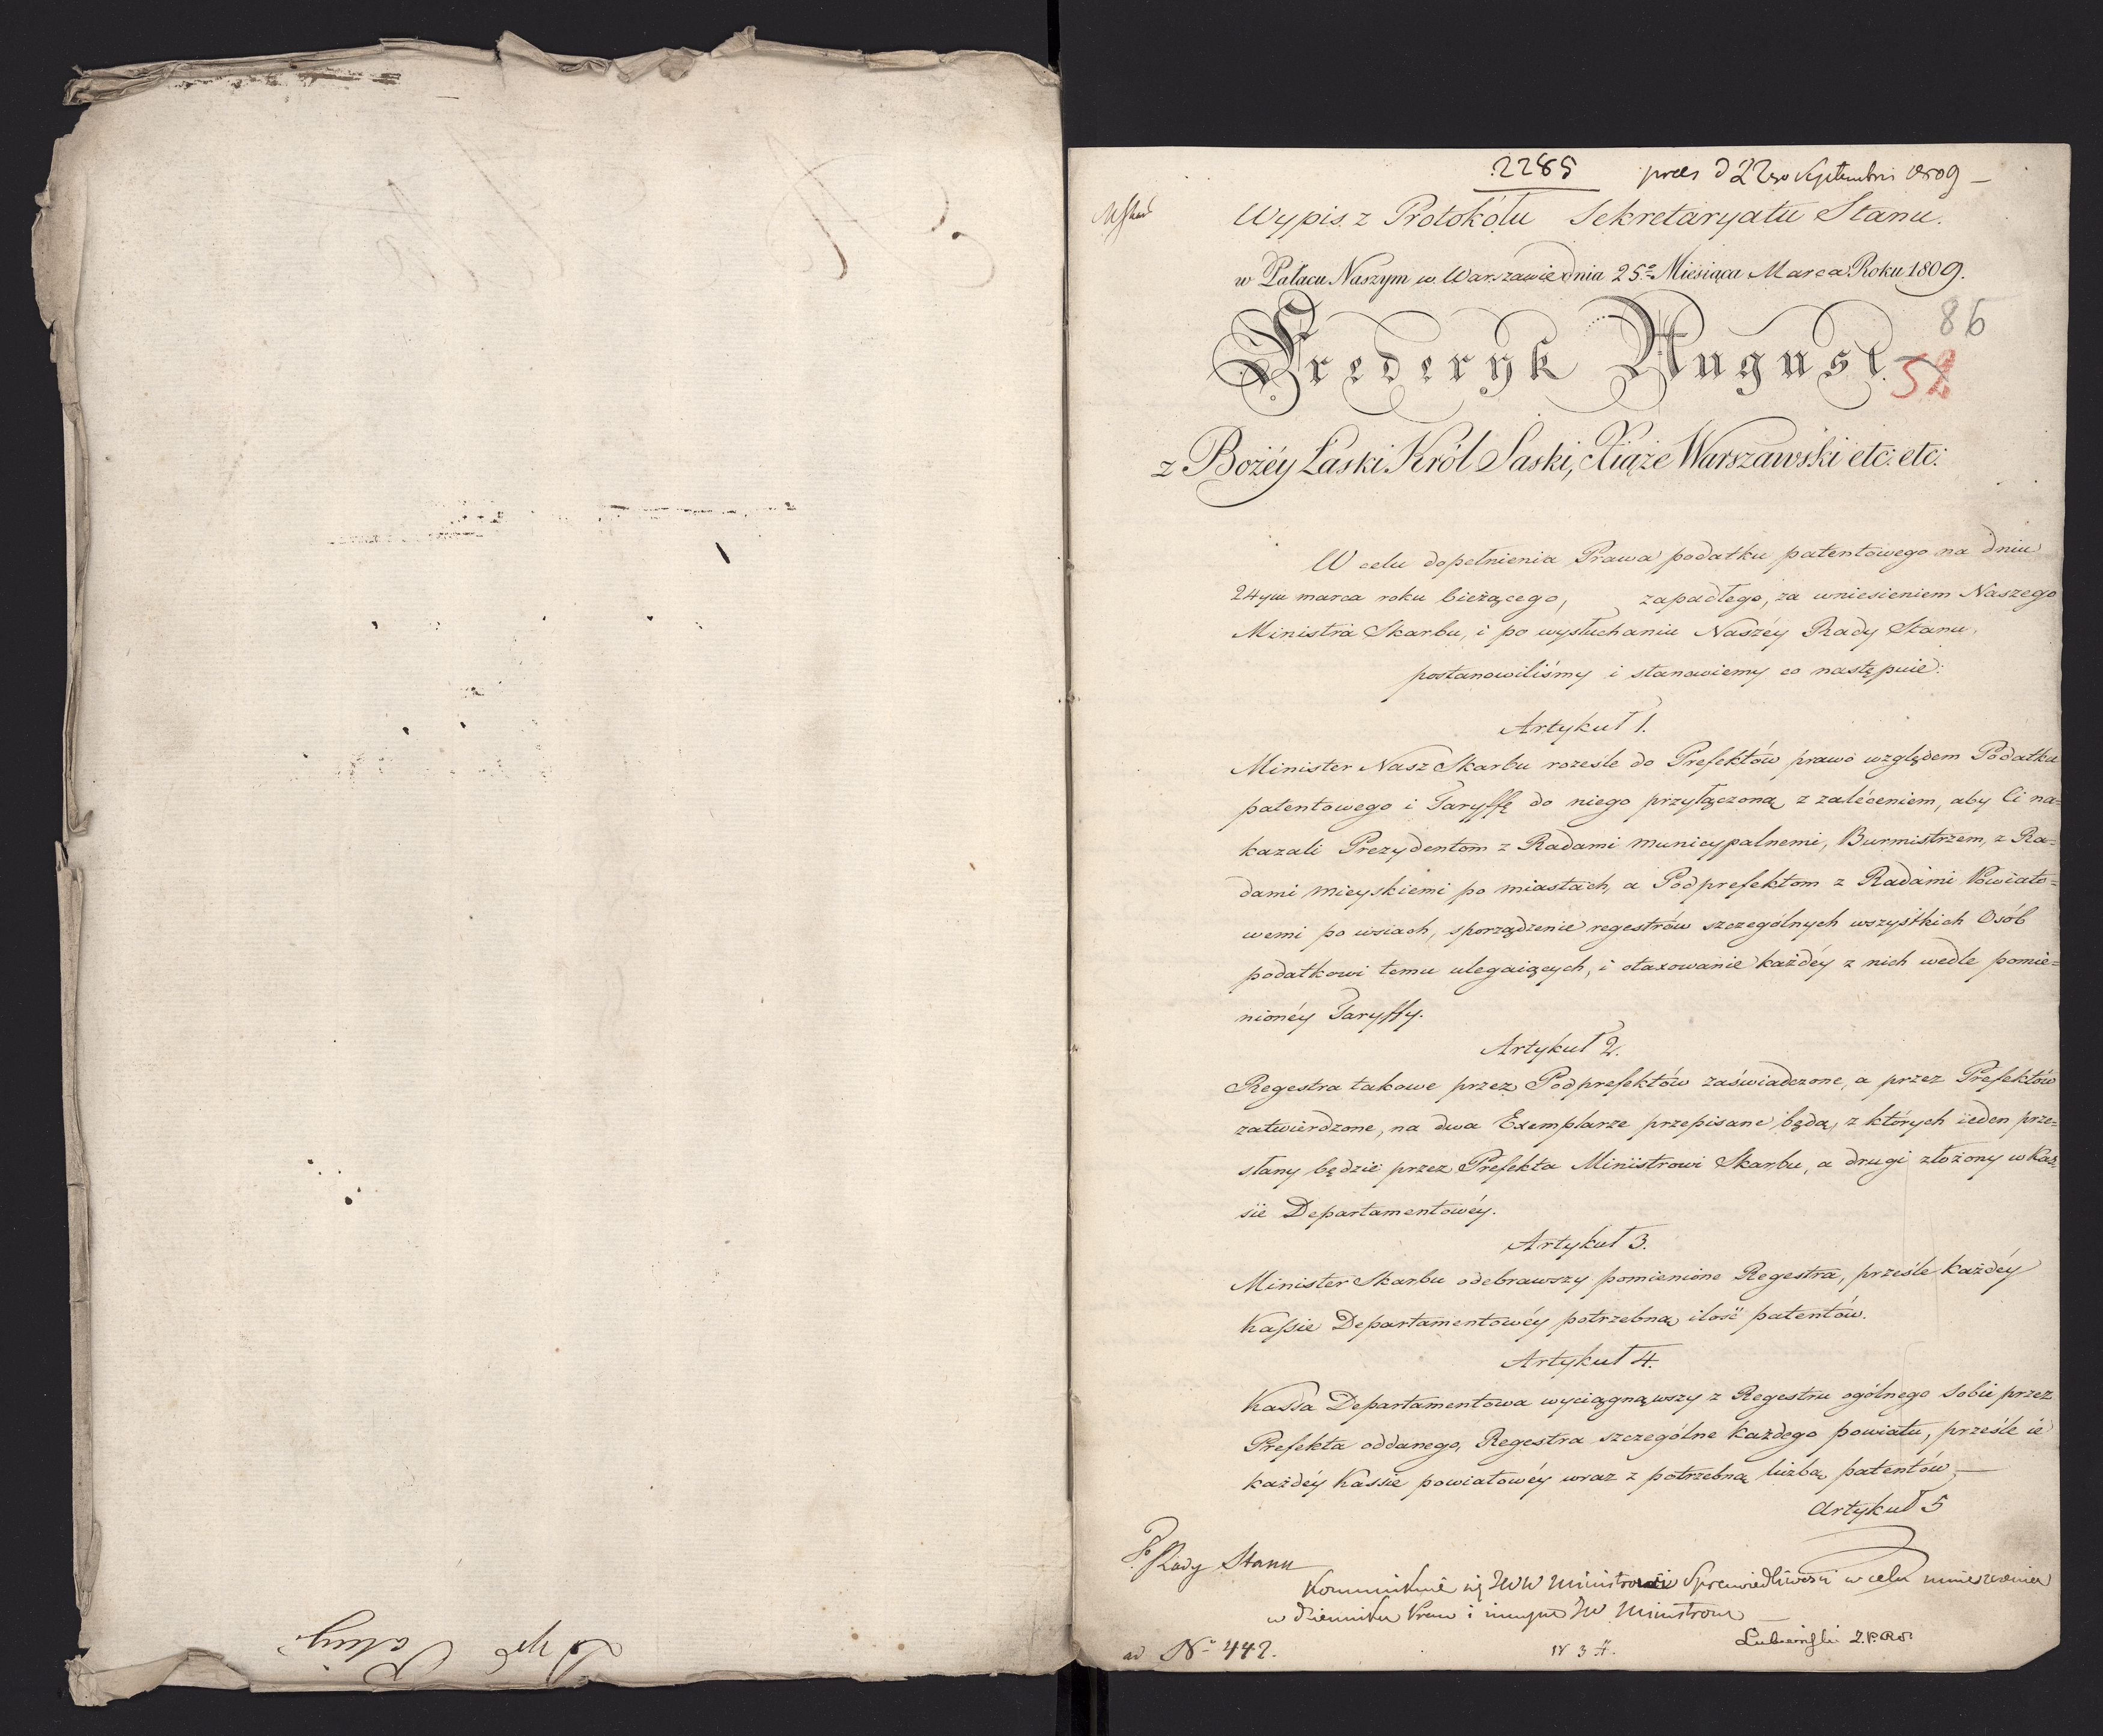 2285 prees d 22go Septembris 1809 —
Wypis z Protokółu Sekretaryatu Stanu.
w Pałacu Naszym w Warszawie dnia 25º Miesiąca Marca Roku 1809.
86
Frederyk August.
52
z Bożéy Łaski Król Saski, Xiąże Warszawski etc: etc:
W celu dopełnienia Prawa podatku patentowego na dniu
24ym marca roku bieżącego, zapadłego, za wniesieniem Naszego
Ministra Skarbu, i po wysłuchaniu Naszéy Rady Stanu,
postanowiliśmy i stanowiemy co następuie:
Artykuł 1.
Minister Nasz Skarbu roześle do Prefektów prawo względem Podatku
patentowego i Taryffę do niego przyłączoną z zaléceniem, aby Ci na=
kazali Prezydentom z Radami municypalnemi, Burmistrzem, z Ra=
dami mieyskiemi po miastach, a Podprefektom z Radami Powiato=
wemi po wsiach, sporządzenie regestrów szczególnych wszystkich Osób
podatkowi temu ulegaiących, i otaxowanie każdéy z nich wedle pomie=
nionéy Taryffy.
Artykuł 2.
Regestra takowe przez Podprefektów zaświadczone, a przez Prefektów
zatwierdzone, na dwa Exemplarze przepisane będą, z których ieden prze=
słany będzie przez Prefekta Ministrowi Skarbu, a drugi złożony w Kas=
sie Departamentowéy.
Artykuł 3.
Minister Skarbu odebrawszy pomienione Regestra, prześle każdéy
Kassie Departamentowéy potrzebną ilość patentów.
Artykuł 4.
Kassa Departamentowa wyciągnąwszy z Regestru ogólnego sobie przez
Prefekta oddanego, Regestra szczególne każdego powiatu, prześle ie
każdéy Kassie powiatowéy wraz z potrzebną liczbą patentów. —
Artykuł 5
Rady Stanu
Kommunikuie się JWW Ministrowi Sprawiedliwości w celu umieszczenia
w Dzienniku Praw i innym JW Ministrom —
Lubieński Z.P.R.S.
ad Nº 442.